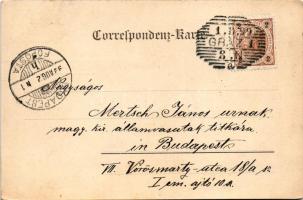 Correspondenz-Karte
1.8.99
GRAZ 1
2
2
BUDAPEST
FŐPOSTA
Nagyságos
Mertsch János urnak
magy. kir. államvasutak titkára
in Budapest
VII. Vörösmarty-utca 18/a sz
I em. ajtó 10.